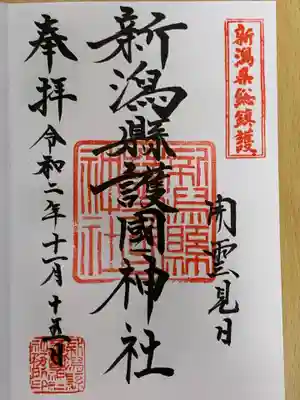 新潟県総鎮護
開雲見日
新潟縣護國神社
奉拝
令和二年十一月十五日